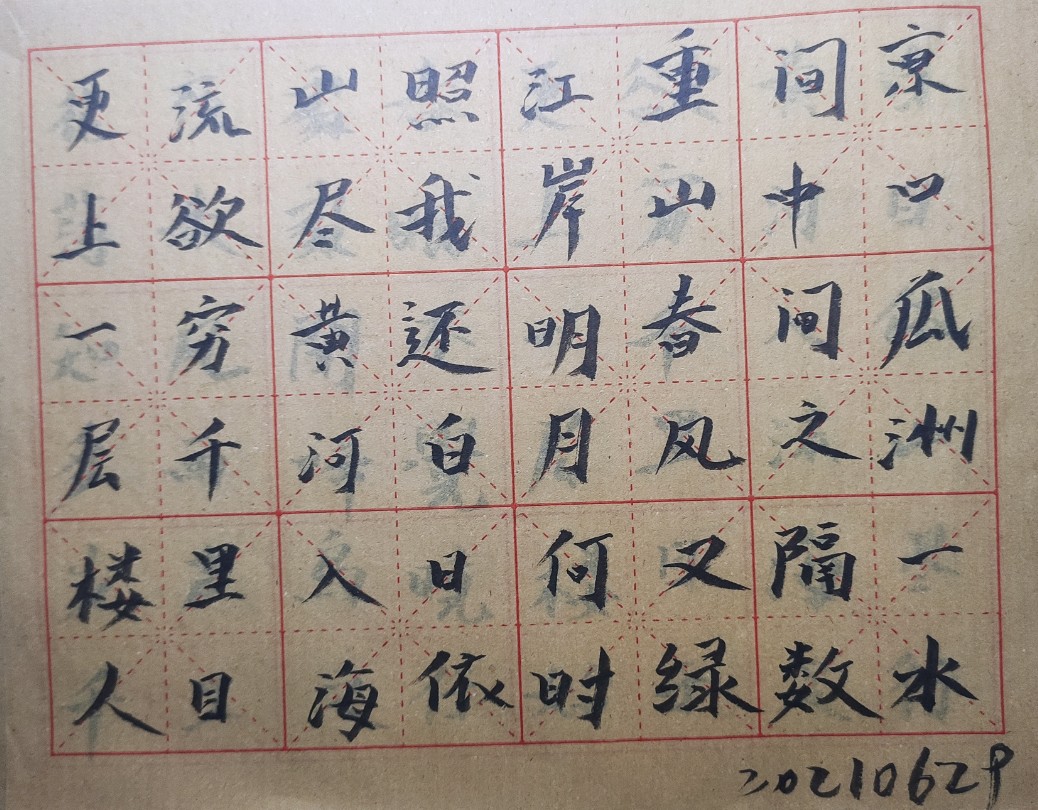 京口瓜洲一水
间中间之隔数
重山春风又绿
江岸明月何时
照我还白日依
山尽黄河入海
流欲穷千里目
更上一层楼人
20210629